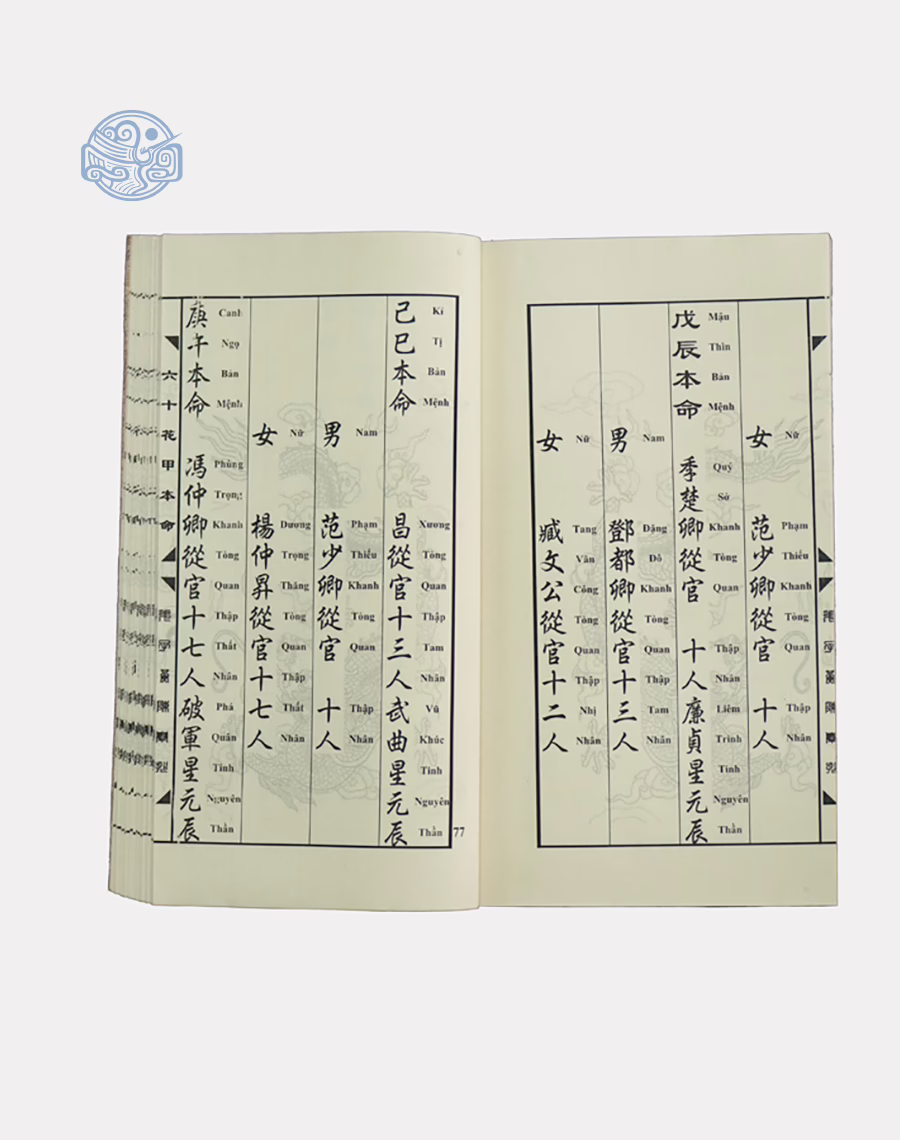 女 范少卿從官 十人
Nữ Phạm Thiếu Khanh Tòng Quan Thập Nhân
戊辰本命 季楚卿從官 十人廉貞星元辰
Mậu Thìn Bản Mệnh Quý Sở Khanh Tòng Quan Thập Nhân Liêm Trinh Tinh Nguyên Thần
男 鄧都卿從官十三人
Nam Đặng Đô Khanh Tòng Quan Thập Tam Nhân
女 臧文公從官十二人
Nữ Tang Văn Công Tòng Quan Thập Nhị Nhân
己巳本命 昌從官十三人武曲星元辰
Kỉ Tị Bản Mệnh Xương Tòng Quan Thập Tam Nhân Vũ Khúc Tinh Nguyên Thần
男 范少卿從官 十人
Nam Phạm Thiếu Khanh Tòng Quan Thập Nhân
女 楊仲昇從官十七人
Nữ Dương Trọng Thăng Tòng Quan Thập Thất Nhân
庚午本命 馮仲卿從官十七人破軍星元辰
Canh Ngọ Bản Mệnh Phùng Trọng Khanh Tòng Quan Thập Thất Nhân Phá Quân Tinh Nguyên Thần
六十花甲本命
77